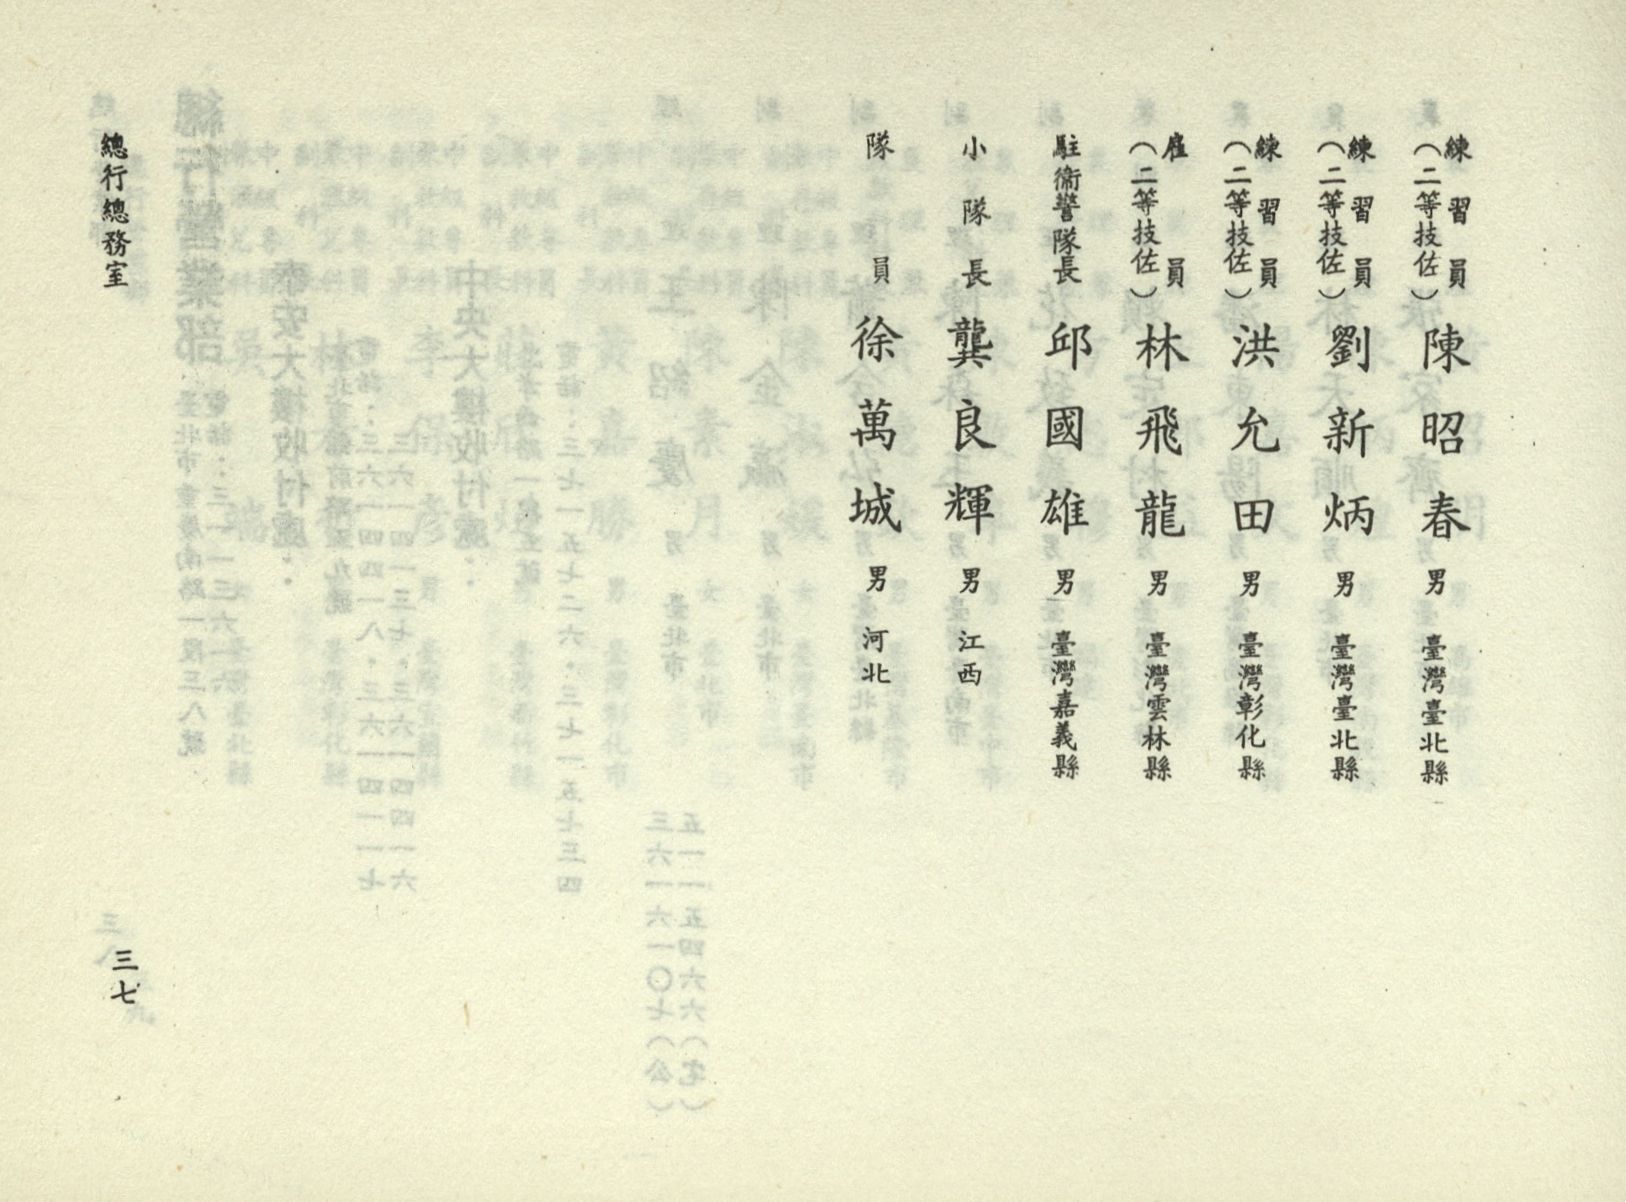 練習員（二等技佐）陳昭春 男 臺灣臺北縣
練習員（二等技佐）劉新炳 男 臺灣臺北縣
練習員（二等技佐）洪允田 男 臺灣彰化縣
雇員（二等技佐）林飛龍 男 臺灣雲林縣
駐衞警隊長 邱國雄 男 臺灣嘉義縣
小隊長 龔良輝 男 江西
隊員 徐萬城 男 河北
總行總務室
三七